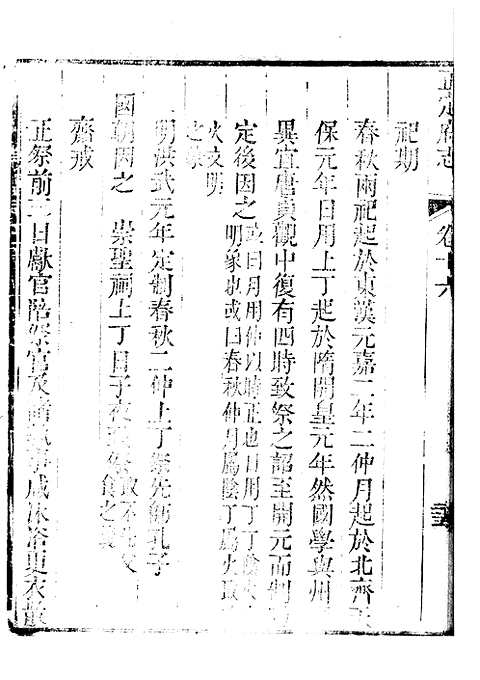 正定府志
卷十六
祀期
春秋兩祀起於東漢元嘉二年二仲月起於北齊天
保元年日用上丁起於隋開皇元年然國學與州
異宜唐貞觀中復有四時致祭之詔至開元而制
定後因之其曰月用仲以時正也日用丁丁陰火
明象也或曰春秋仲月屬陰丁屬火取
火文明
之象
明洪武元年定制春秋二仲上丁祭先師孔子
國朝因之 崇聖祠上丁日子夜致祭取不先父
食之義
齋戒
正祭前二日獻官陪祭官及諸執事咸沐浴更衣散